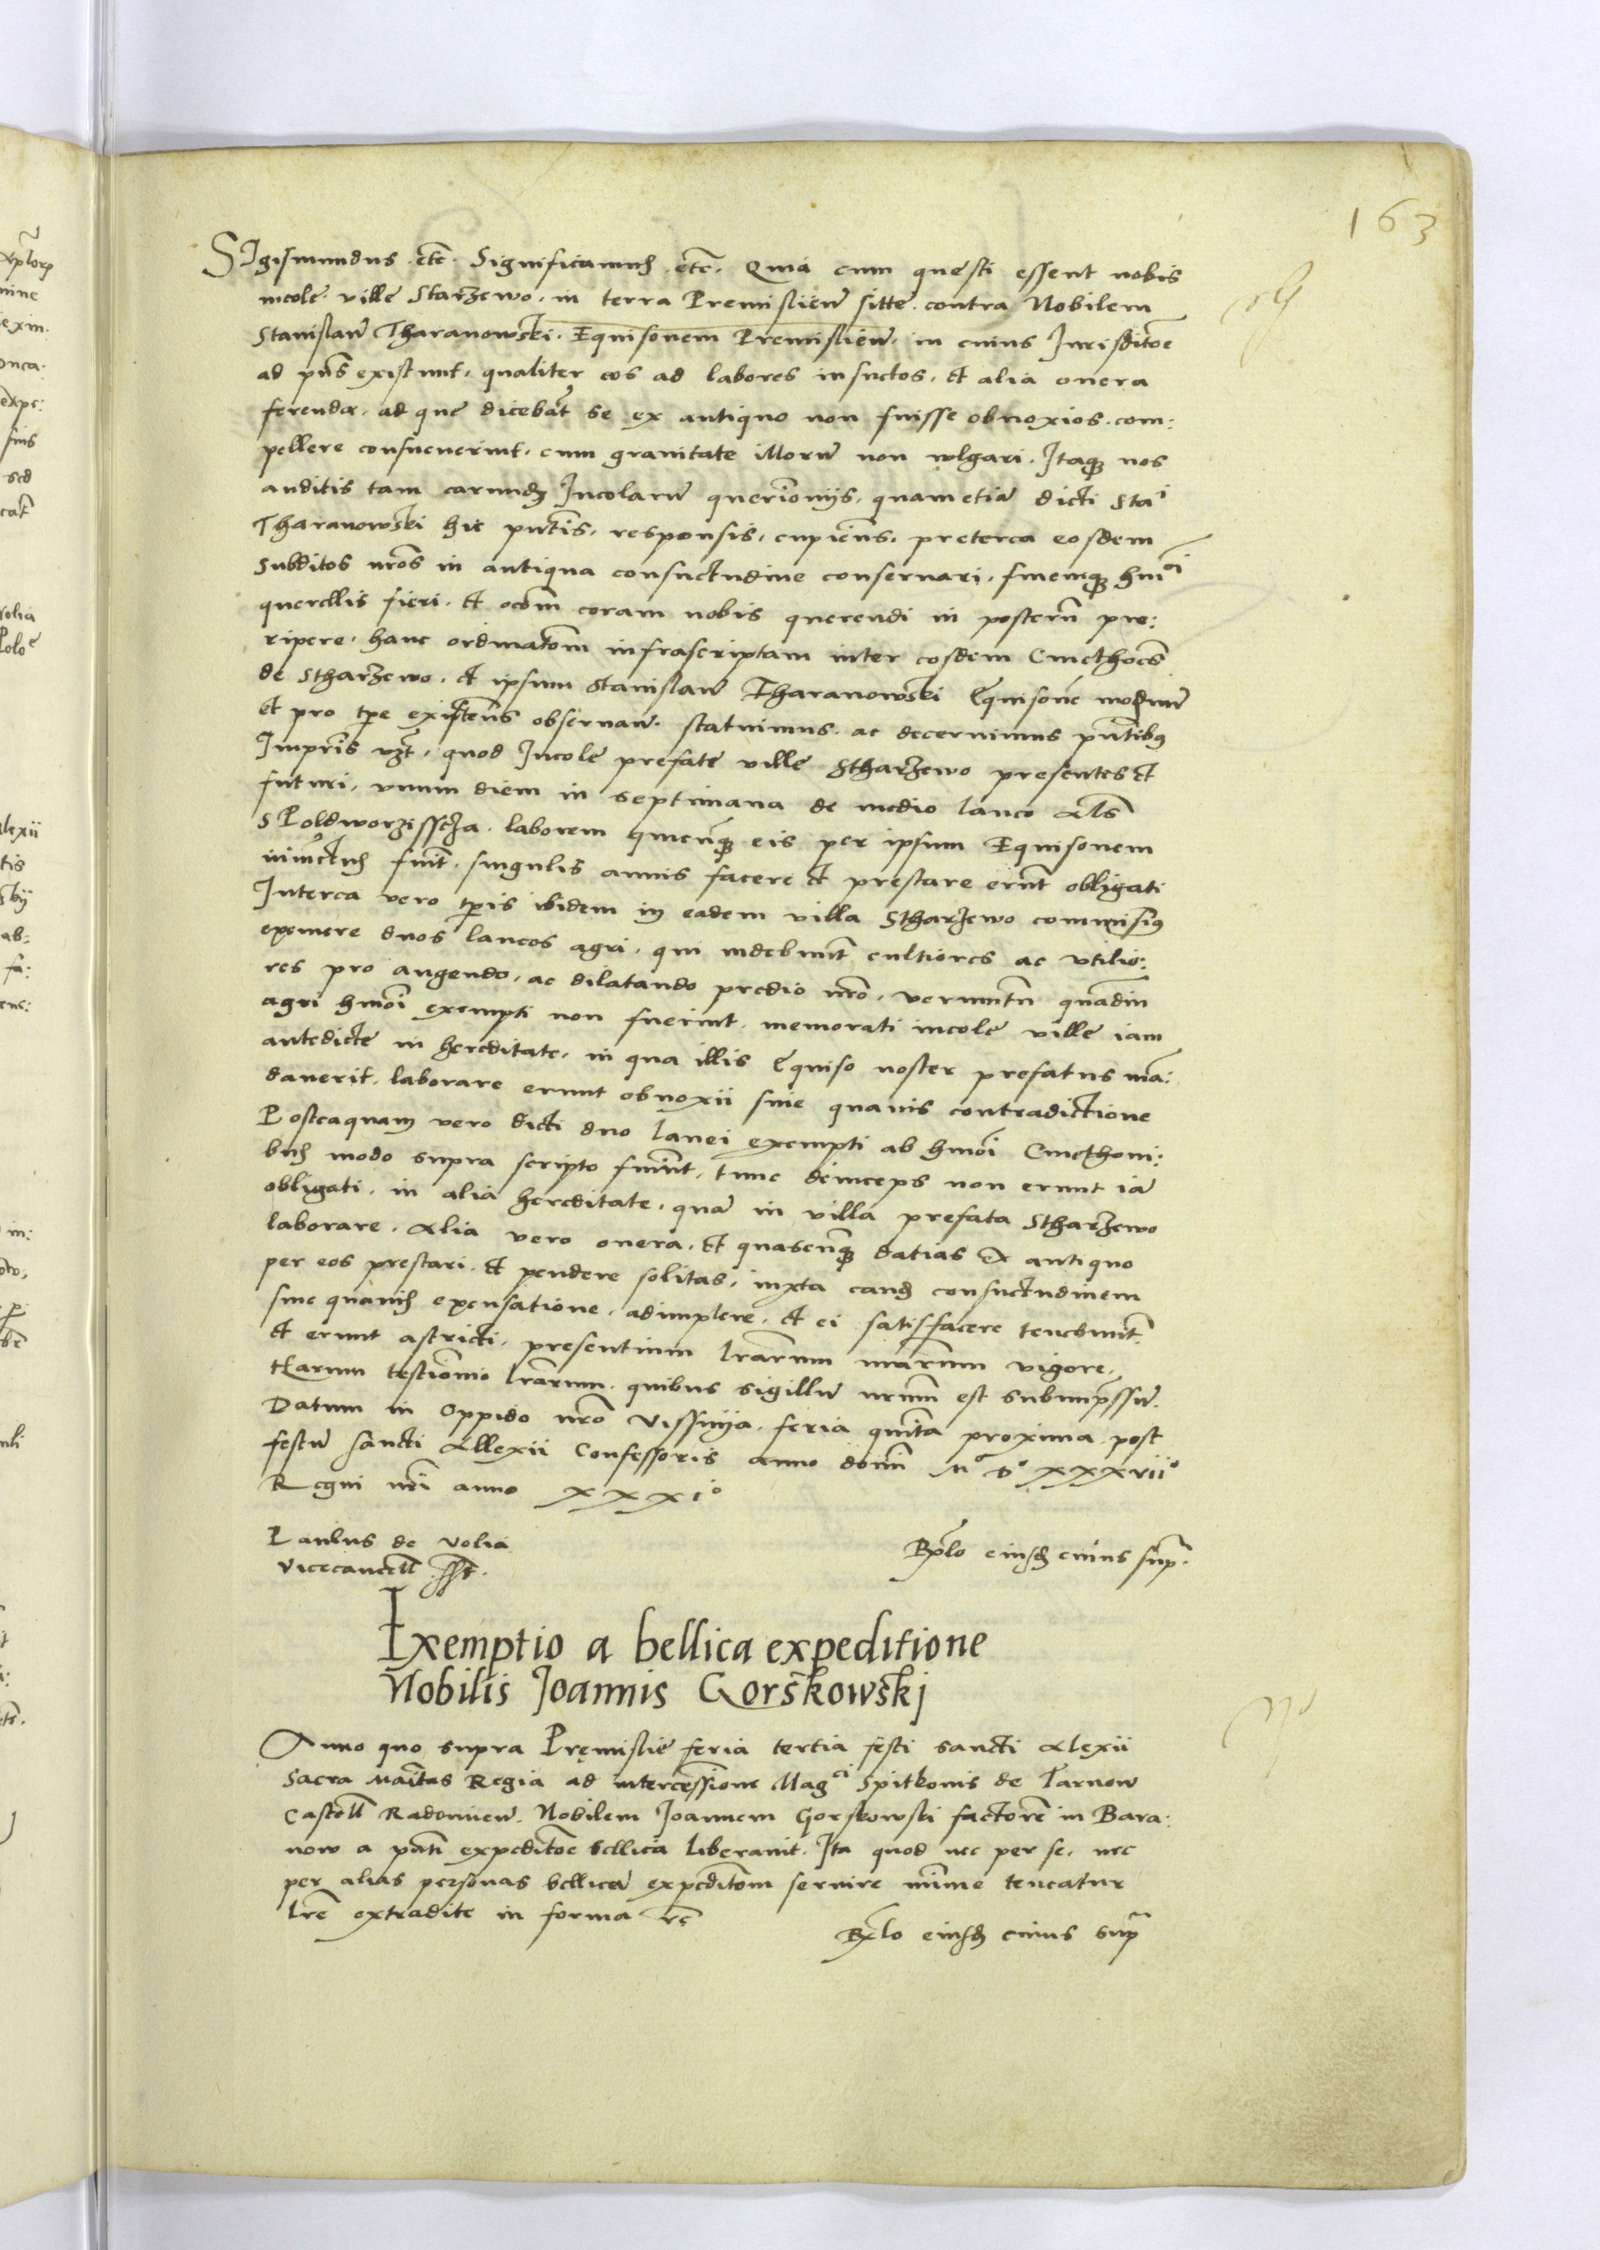 163
SIgismundus. etc̃. Significamus. etc̃. Quia cum questi essent nobis
incole. ville Starzewo. in terra Premislieñ sitte. contra Nobilem
Stanislaũ Tharanowski. Equisonem Premislieñ. in cuius Jurisdictõe
ad p̃ns existunt. qualiter eos ad labores insuetos. et alia onera
ferenda. ad que dicebãt se ex antiquo non fuisse obnoxios. com:
pellere consueuerint. cum grauitate illorũ non wlgari. Itaq3 nos
auditis tam earund3 Incolarũ querimoniis. quam etiã dicti Stai
Tharanowski hic p̃ntis. responsis. cupieñs. preterea eosdem
subditos nr̃os in antiqua consuetudine conseruari. finemq3 hm̃oi
querellis fieri. et occõm coram nobis querendi in posterũ pre:
ripere. hanc ordinatõm infrascriptam inter eosdem Cmethoñes
de Stharzewo. et ipsum Stanislaũ Tharanowski Equisonẽ modernũ
et pro tp̃e existeñs obseruañ. statuimus. ac decernimus p̃ntibus
Imprĩs vz̃t. quod Incole prefate ville Stharzewo presentes et
futuri. vnum diem in septimana de medio laneo als̃
s Poldworzisscza. laborem quencũq3 eis per ipsum Equisonem
iniunctus fuĩt. singulis annis facere et prestare erũt obligati
Interea vero tp̃is ibidem in eadem villa Stharzewo commisimus
eximere duos laneos agri. qui videbunt̃ cultiores ac vtilio:
res pro augendo. ac dilatando predio nr̃o. veruntñ quãdiu
agri hm̃oi exempti non fuerint. memorati incole ville iam
antedicte in hereditate. in qua illis Equiso noster prefatus mã:
dauerit. laborare erunt obnoxii sine quauis contradictione
Posteaquam vero dicti duo lanei exempti ab hm̃oi Cmethoni:
bus modo supra scripto fuerĩnt. tunc deinceps non erunt iã
obligati. in alia hereditate. quã in villa prefata Stharzewo
laborare. Alia vero onera. et quascũq3 datias ex antiquo
per eos prestari. et pendere solitas. iuxta eand3 consuetudinem
sine quauis expensatione. adimplere. et ei satisfacere tenebunt̃.
et erunt astricti. presentium lr̃arum nr̃arum vigore.
Harum testiõmio lr̃arum. quibus sigillũ nr̃um est subimp̃ssũ.
Datum in Oppido nr̃o Vissnija. feria quĩta proxima post
festũ sancti Allexii Confessoris anno domĩ Mº Dº XXXVIIº
Regni nr̃i anno XXXIº
Paulus de Volia
Vicecancell̃ sst̃.
Rel̃o eiusd3 cuius sup̃.
Exemptio a bellica expeditione
Nobilis Joannis Gorskowskj
Anno quo supra Premislie feria tertia festi sancti Alexii
Sacra Maĩtas Regia ad intercessionẽ Magci Spitkonis de Tarnow
Castell̃ Radomieñ. Nobilem Joannem Gorskowski factorẽ in Bara:
now a p̃nti expeditõe bellica liberauit. Ita quod nec per se. nec
per alias personas bellicã expeditõm seruire minime teneatur
lr̃e extradite in forma rẽ
Rel̃o eiusd3 cuius sup̃